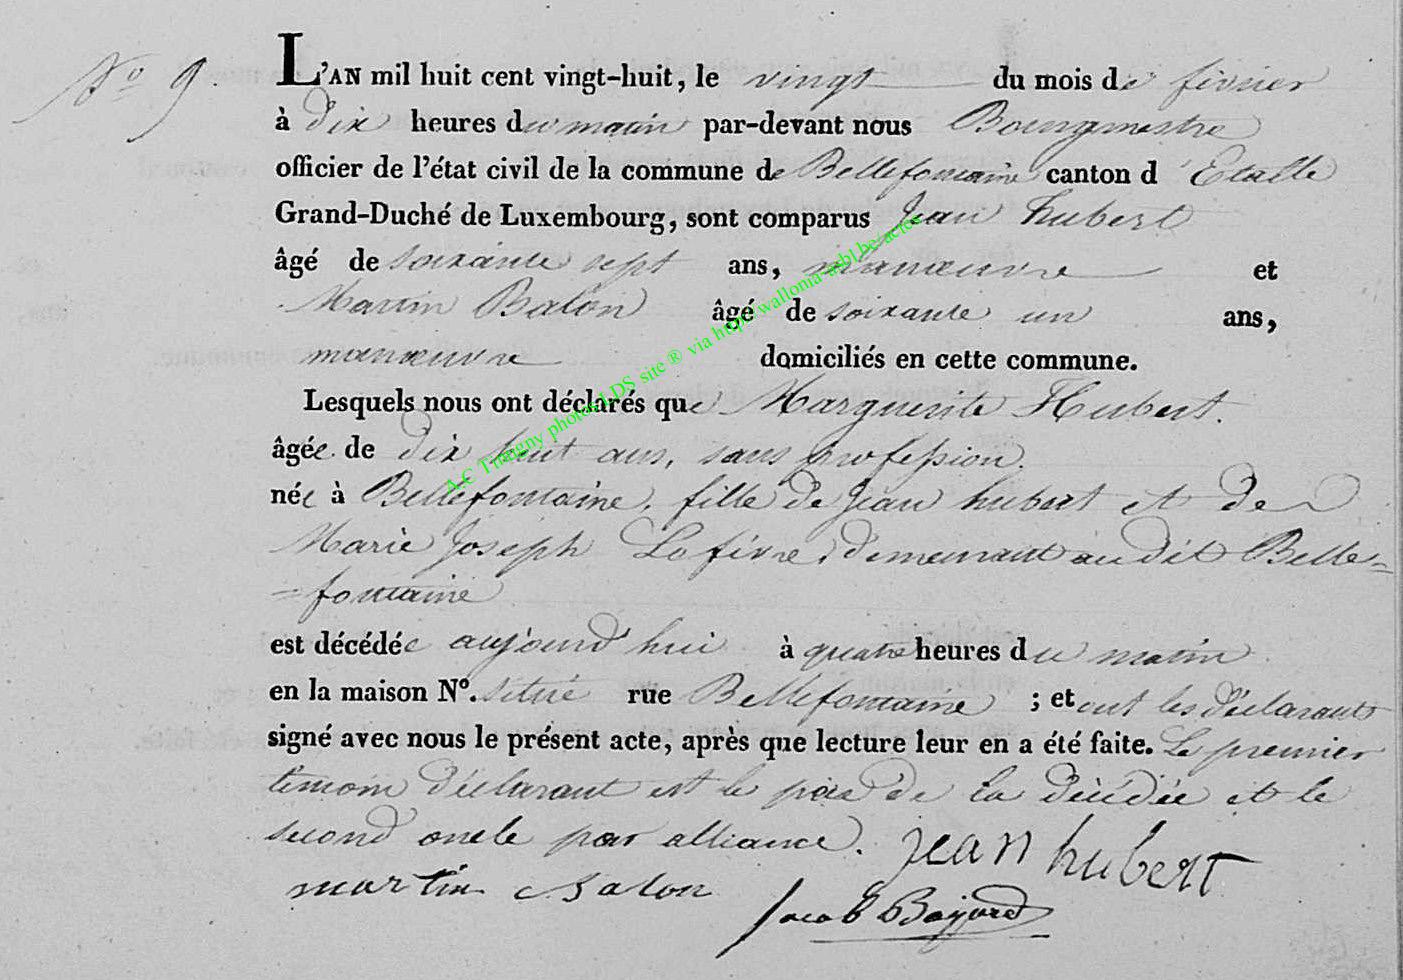 No 9.
L'AN mil huit cent vingt-huit, le vingt du mois de février
à dix heures du matin par-devant nous Bourgmestre
officier de l'état civil de la commune de Bellefontaine canton d'Etalle
Grand-Duché de Luxembourg, sont comparus Jean hubert
âgé de soixante sept ans, manœuvre et
Martin Balon âgé de soixante un ans,
manœuvre domiciliés en cette commune.
Lesquels nous ont déclarés que Marguerite Hubert.
âgée de dix huit ans, sans profession.
née à Bellefontaine, fille de Jean hubert et de
Marie Joseph Lefèvre, demeurant audit Belle=
=fontaine
est décédée aujourd'hui à quatre heures du matin
en la maison No. située rue Bellefontaine ; et ont les déclarants
signé avec nous le présent acte, après que lecture leur en a été faite. Le premier
témoin déclarant est le père de la décédée et le
second oncle par alliance.
jean hubert
martin Balon
Jacob Bajard
A.C Tintigny photos LDS site ® via http://wallonia-asbl.be/actes